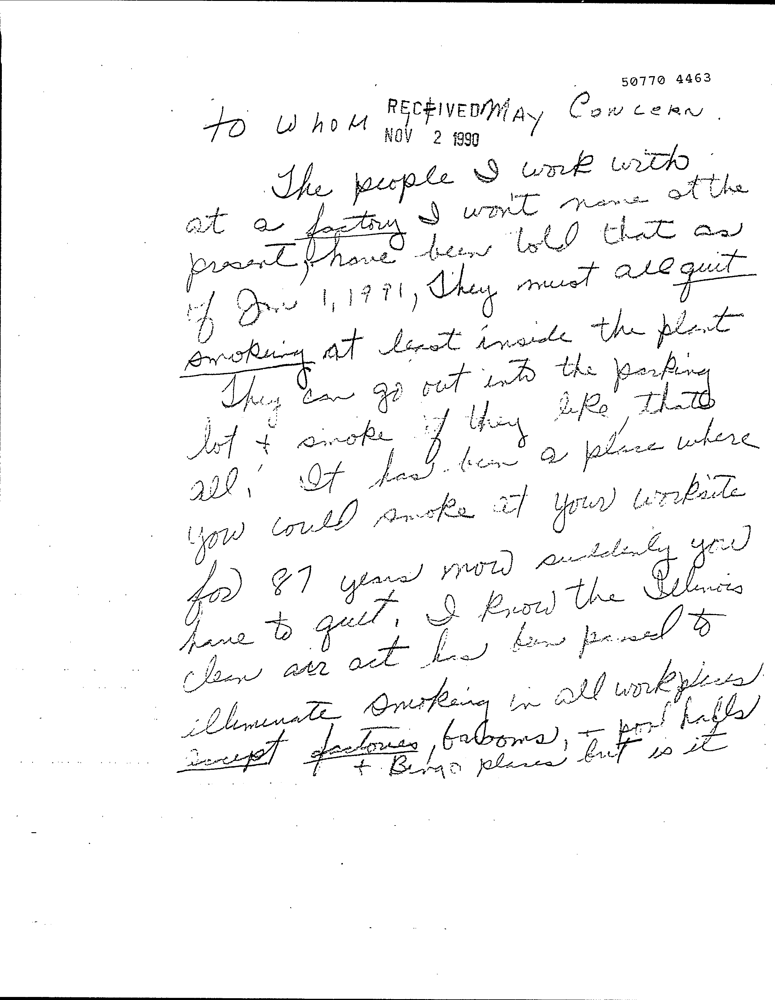 50770 4463
to whom MAY CONCERN.
RECEIVED
NOV 2 1990
The people I work with
at a factory I won't name at the
present, have been told that as
of Jan 1, 1991, They must all quit
smoking at least inside the plant
They can go out into the parking
lot + smoke if they like, thats
all. It has been a place where
you could smoke at your worksite
for 87 years now suddenly you
have to quit. I know the Illinois
clean air act has been passed to
illuminate smoking in all workplaces
except factories, barooms, + pool halls
+ Bingo places but is it